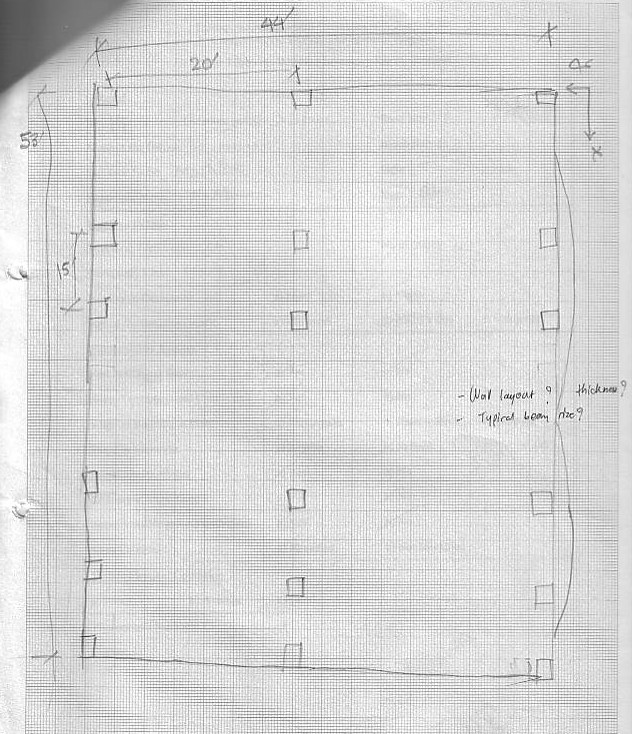 44'
20'
53'
x
15'
- Wall layout ? thickness?
- Typical beam size?